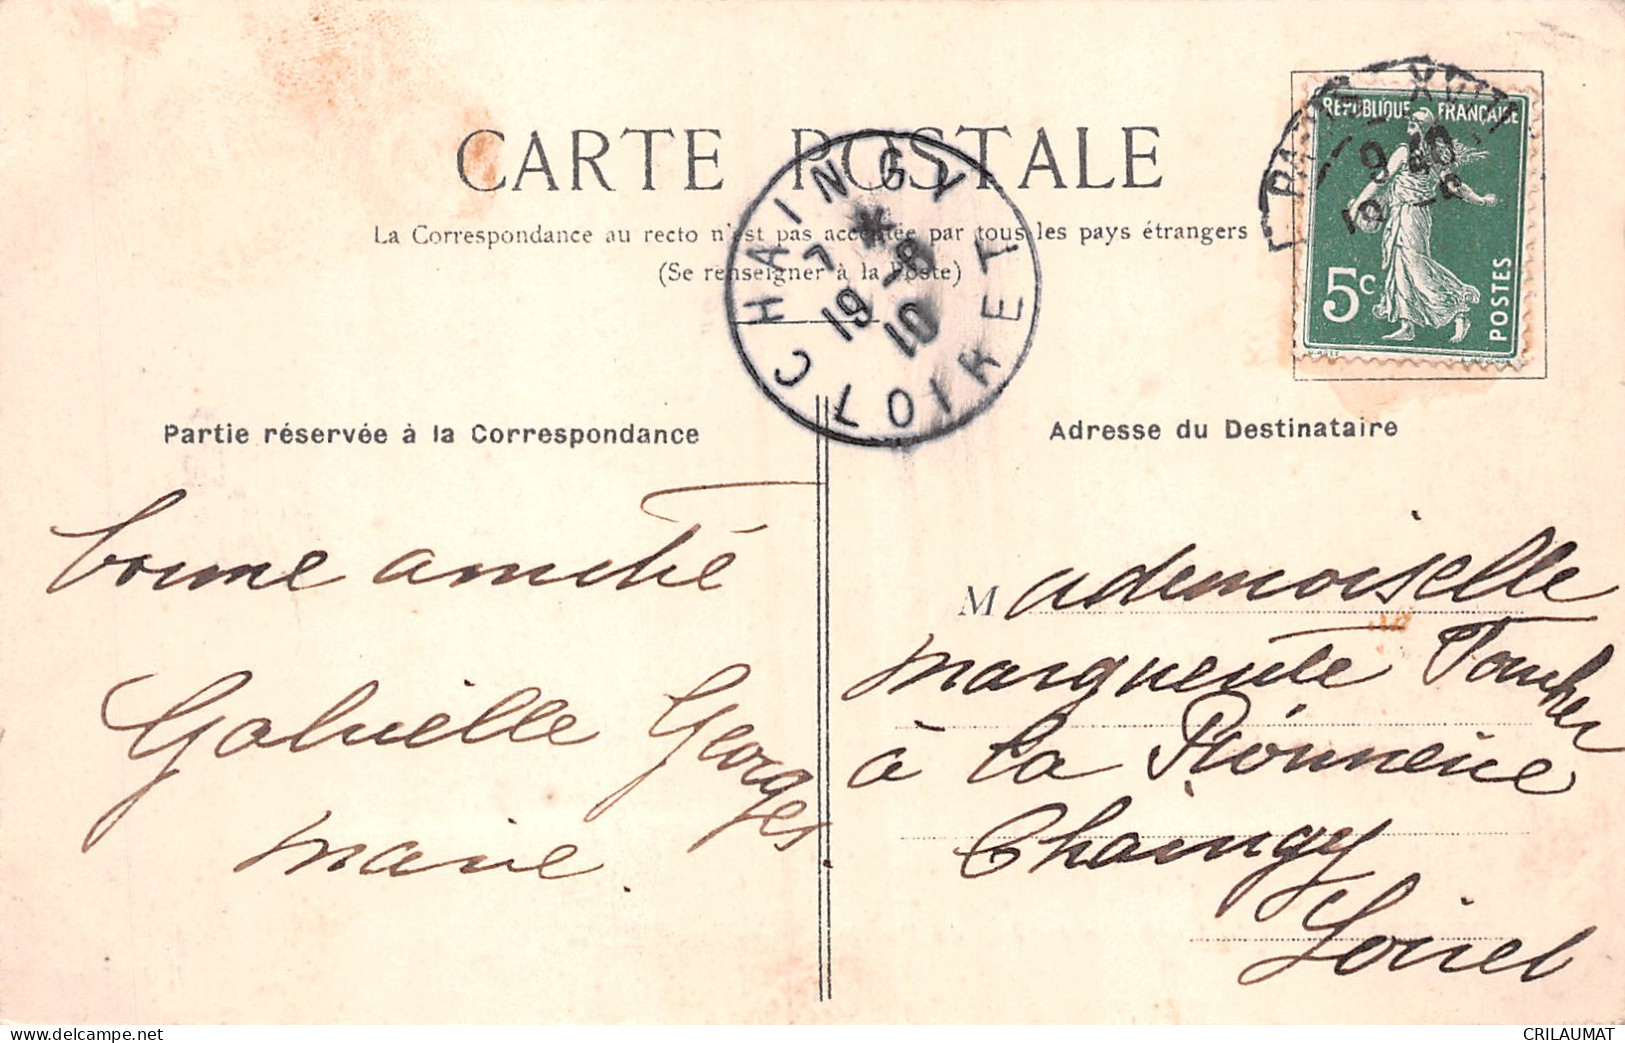 CARTE POSTALE
La Correspondance au recto n'est pas acceptée par tous les pays étrangers
(Se renseigner à la Poste)
RÉPUBLIQUE FRANÇAISE
5c
POSTES
PARIS XVII
9 40
19 -8
CHAINGY LOIRET
7 *
19 -8
10
Partie réservée à la Correspondance
Adresse du Destinataire
bonne amitié
Gabrielle Georges
marie.
Mademoiselle
marguerite
à la Pionnerie
Chaingy
Loiret
CRILAUMAT